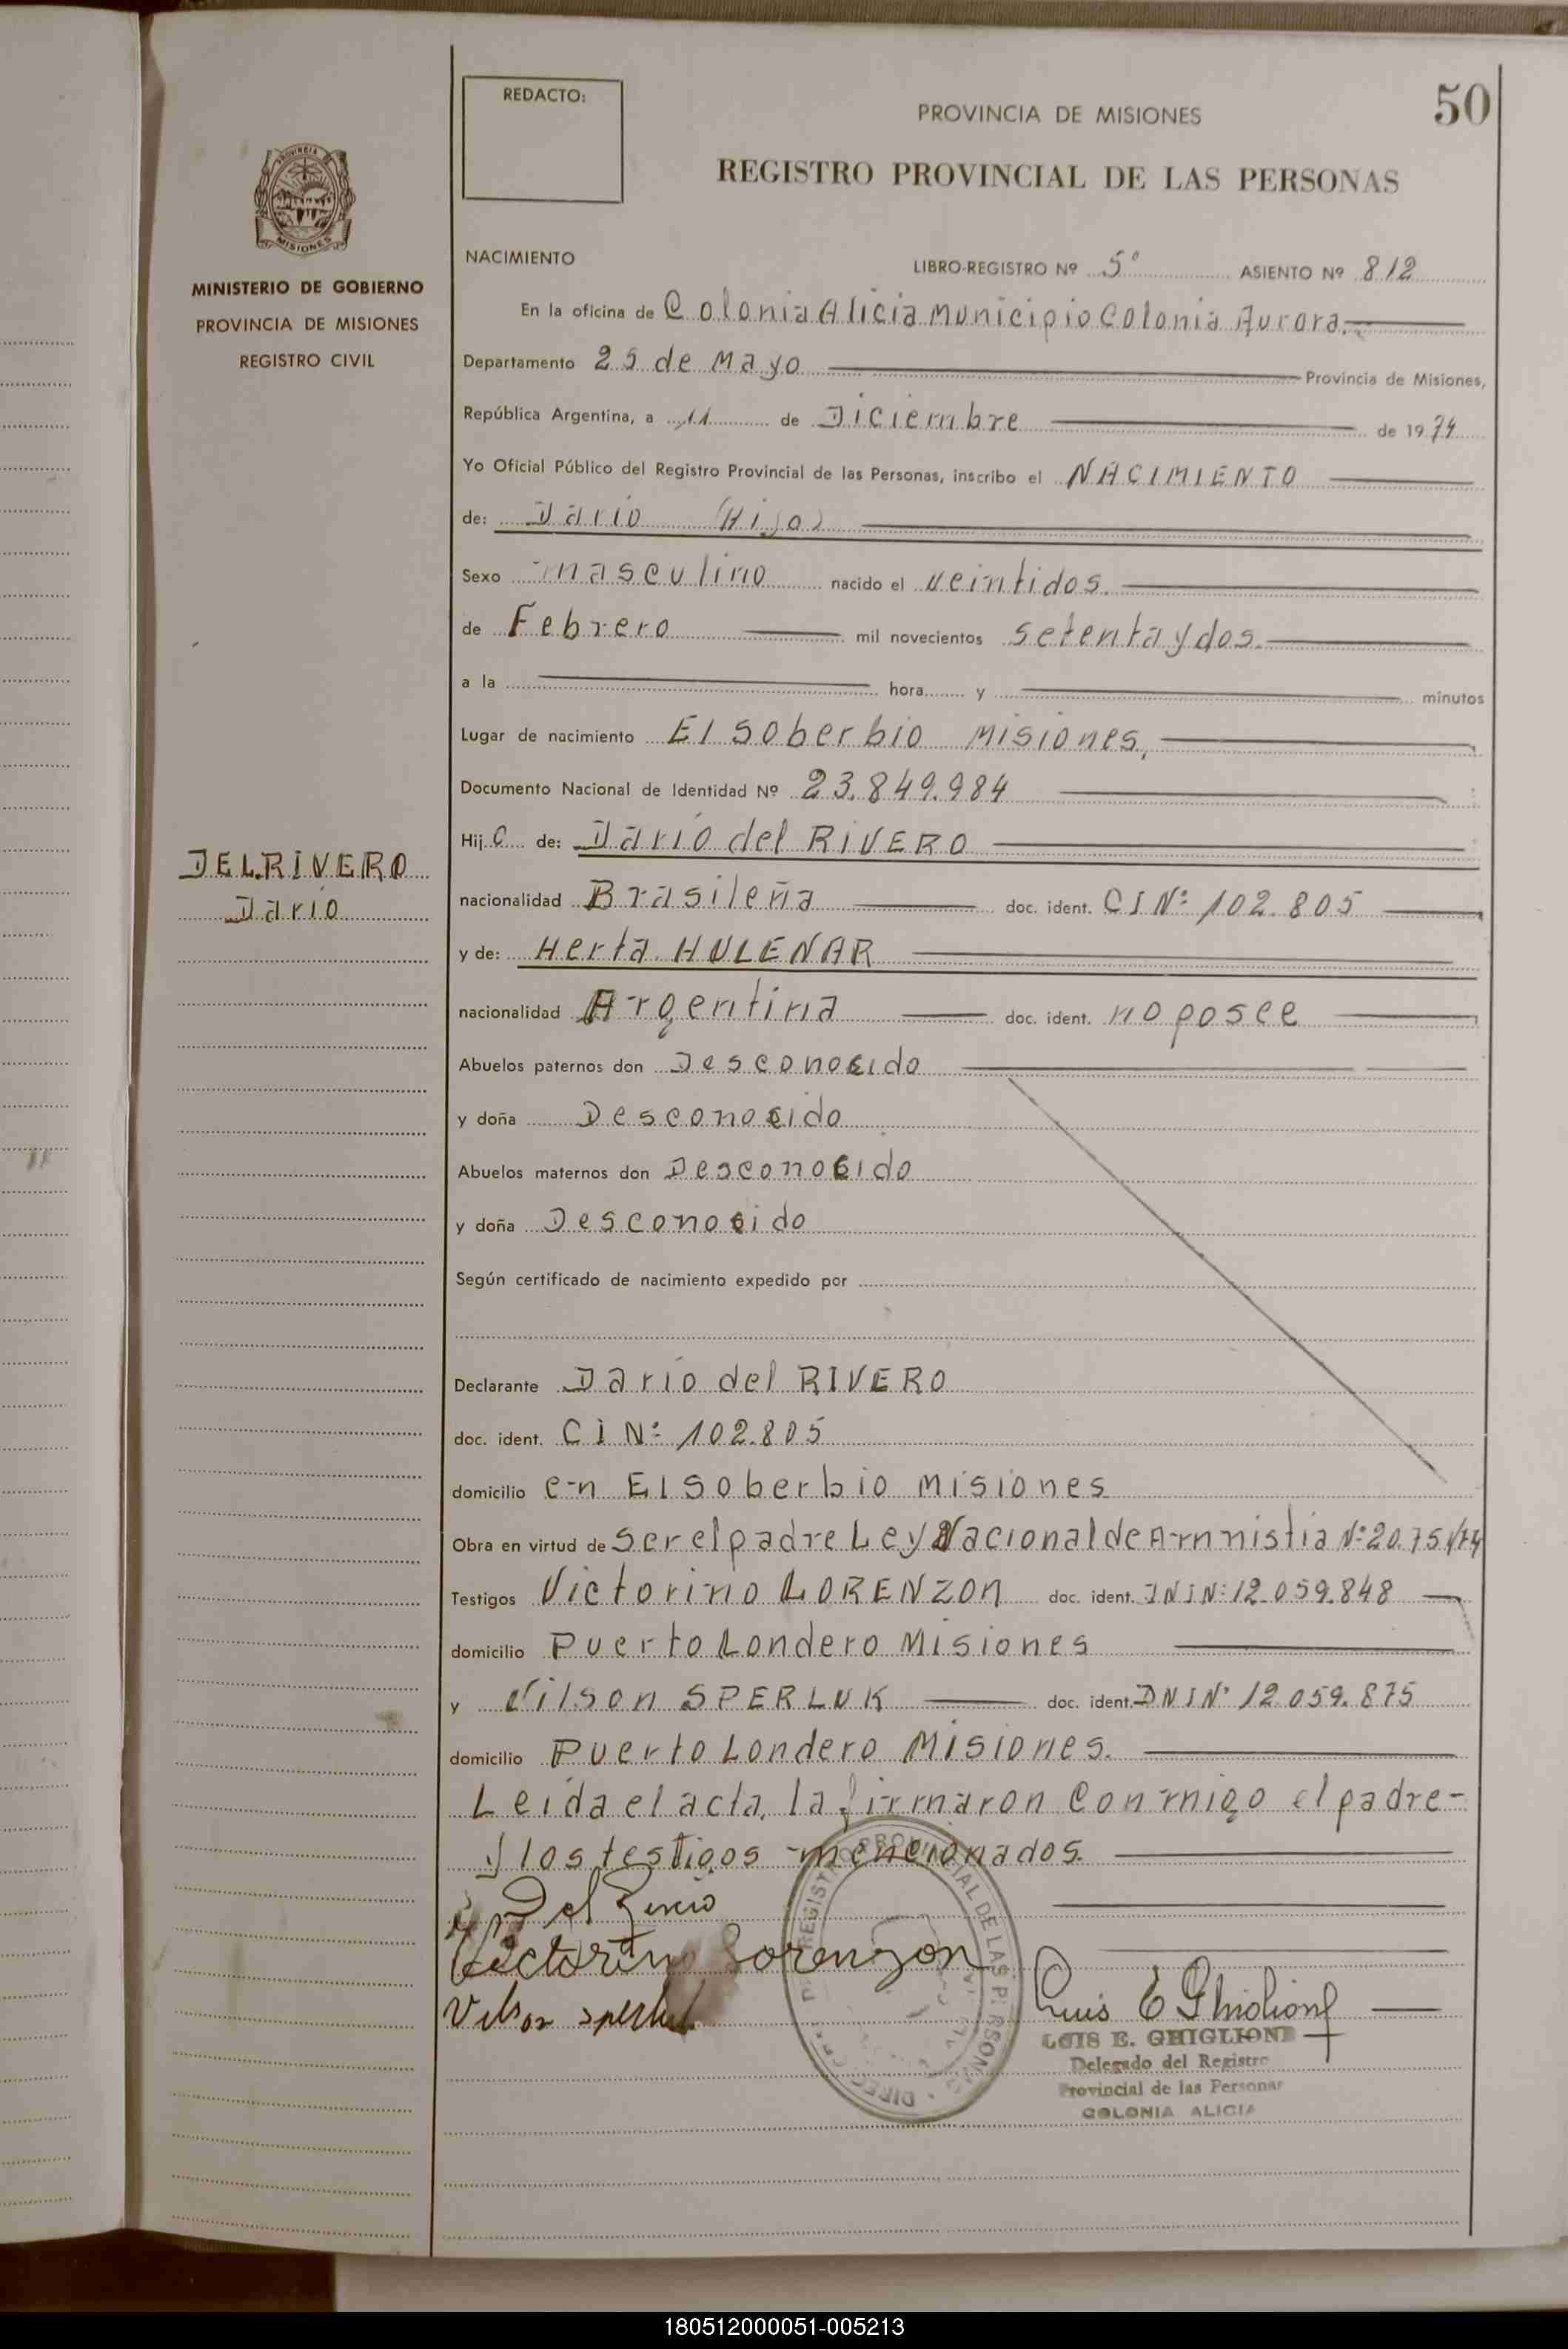 50
REDACTO:
PROVINCIA DE MISIONES
REGISTRO PROVINCIAL DE LAS PERSONAS
PROVINCIA DE
MISIONES
MINISTERIO DE GOBIERNO
PROVINCIA DE MISIONES
REGISTRO CIVIL
DEL RIVERO
Dario
NACIMIENTO LIBRO-REGISTRO Nº 5º ASIENTO Nº 812
En la oficina de Colonia Alicia Municipio Colonia Aurora.
Departamento 25 de Mayo Provincia de Misiones,
República Argentina, a 11 de Diciembre de 1974
Yo Oficial Público del Registro Provincial de las Personas, inscribo el NACIMIENTO
de: Dario (Hijo)
Sexo masculino nacido el veintidos.
de Febrero mil novecientos setenta y dos.
a la hora y minutos
Lugar de nacimiento El Soberbio Misiones,
Documento Nacional de Identidad Nº 23.849.984
Hij o de: Dario del RIVERO
nacionalidad Brasileña doc. ident. CI Nº 102.805
y de: Herta HULENAR
nacionalidad Argentina doc. ident. no posee
Abuelos paternos don Desconocido
y doña Desconocido
Abuelos maternos don Desconocido
y doña Desconocido
Según certificado de nacimiento expedido por
Declarante Dario del RIVERO
doc. ident. CI Nº 102.805
domicilio en El Soberbio Misiones
Obra en virtud de Ser el padre Ley Nacional de Amnistia Nº 20.751/74
Testigos Victorino LORENZON doc. ident. DNI Nº 12.059.848
domicilio Puerto Londero Misiones
y Vilson SPERLUK doc. ident. DNI Nº 12.059.875
domicilio Puerto Londero Misiones.
Leida el acta, la firmaron Conmigo el padre-
y los testigos mencionados.
Victorino Lorenzon
Luis E Ghiglione
LUIS E. GHIGLIONE
Delegado del Registro
Provincial de las Personas
COLONIA ALICIA
180512000051-005213